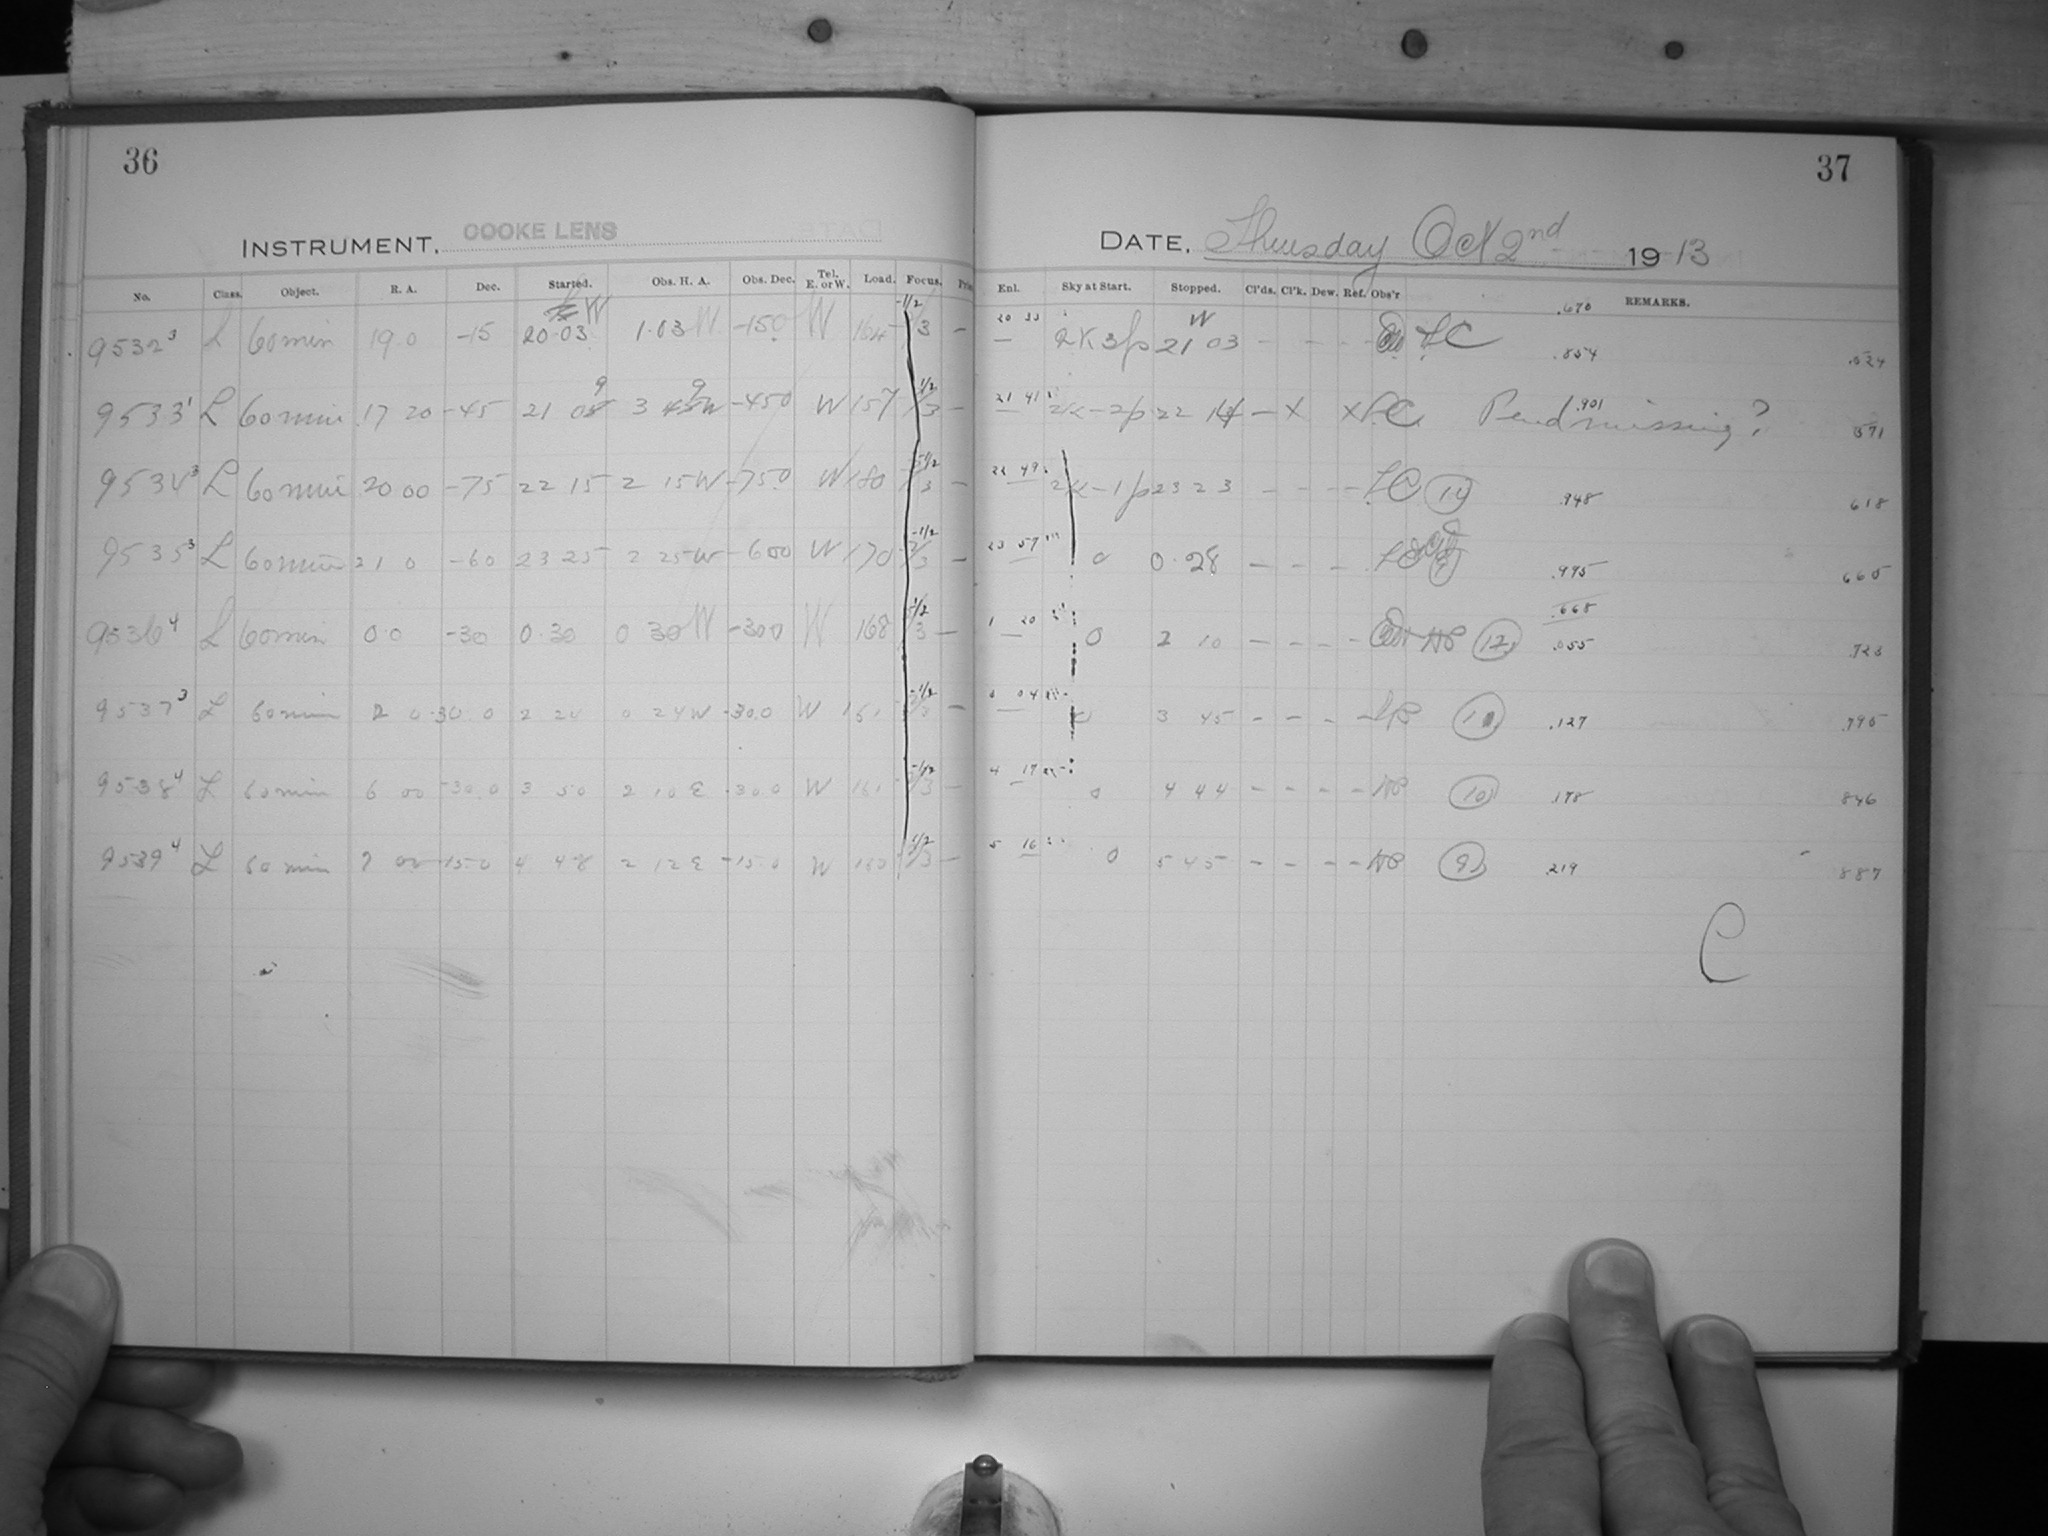 36
INSTRUMENT. COOKE LENS
No. Class. Object. R. A. Dec. Started. Obs. H. A. Obs. Dec. Tel. E. or W. Load. Focus.
9532 3 L 60 min 19 0 -15 20·03 W 1·03 W -15 0 W 164 -1/2 3 -
9533 1 L 60 min 17 20 -45 21 09 3 49 W -45 0 W 157 1/2 3 -
9534 3 L 60 min 20 00 -75 22 15 2 15 W -75 0 W 180 1/2 3 -
9535 3 L 60 min 21 0 -60 23 25 2 25 W -60 0 W 170 -1/2 3 -
9536 4 L 60 min 0 0 -30 0·30 0 30 W -30 0 W 168 1/2 3 -
9537 3 L 60 min 2 0 -30 0 2 24 0 24 W -30 0 W 161 -1/2 3 -
9538 4 L 60 min 6 00 -30 0 3 50 2 10 E -30 0 W 161 -1/2 3 -
9539 4 L 60 min 7 00 -15 0 4 48 2 12 E -15 0 W 1/2 3 -
37
DATE. Thursday Oct 2nd 1913
Enl. Sky at Start. Stopped. Cl'ds. Cl'k. Dew. Ref. Obs'r REMARKS.
.670
20 33 2K 3p 21 03 W - - - - LC .854 .524
21 41 2K-2p 22 14 - X X LC Pend missing? .901 571
22 49 2K-1p 23 23 - - - - LC 14 .948 618
23 57 0 0·28 - - - - .995 665
.668
1 20 0 2 10 - - - - 12 .055 .723
0 04 0 3 45 - - - - .127 .795
4 17 0 4 44 - - - - 10 .178 846
5 16 0 5 45 - - - - 9 .219 887
C